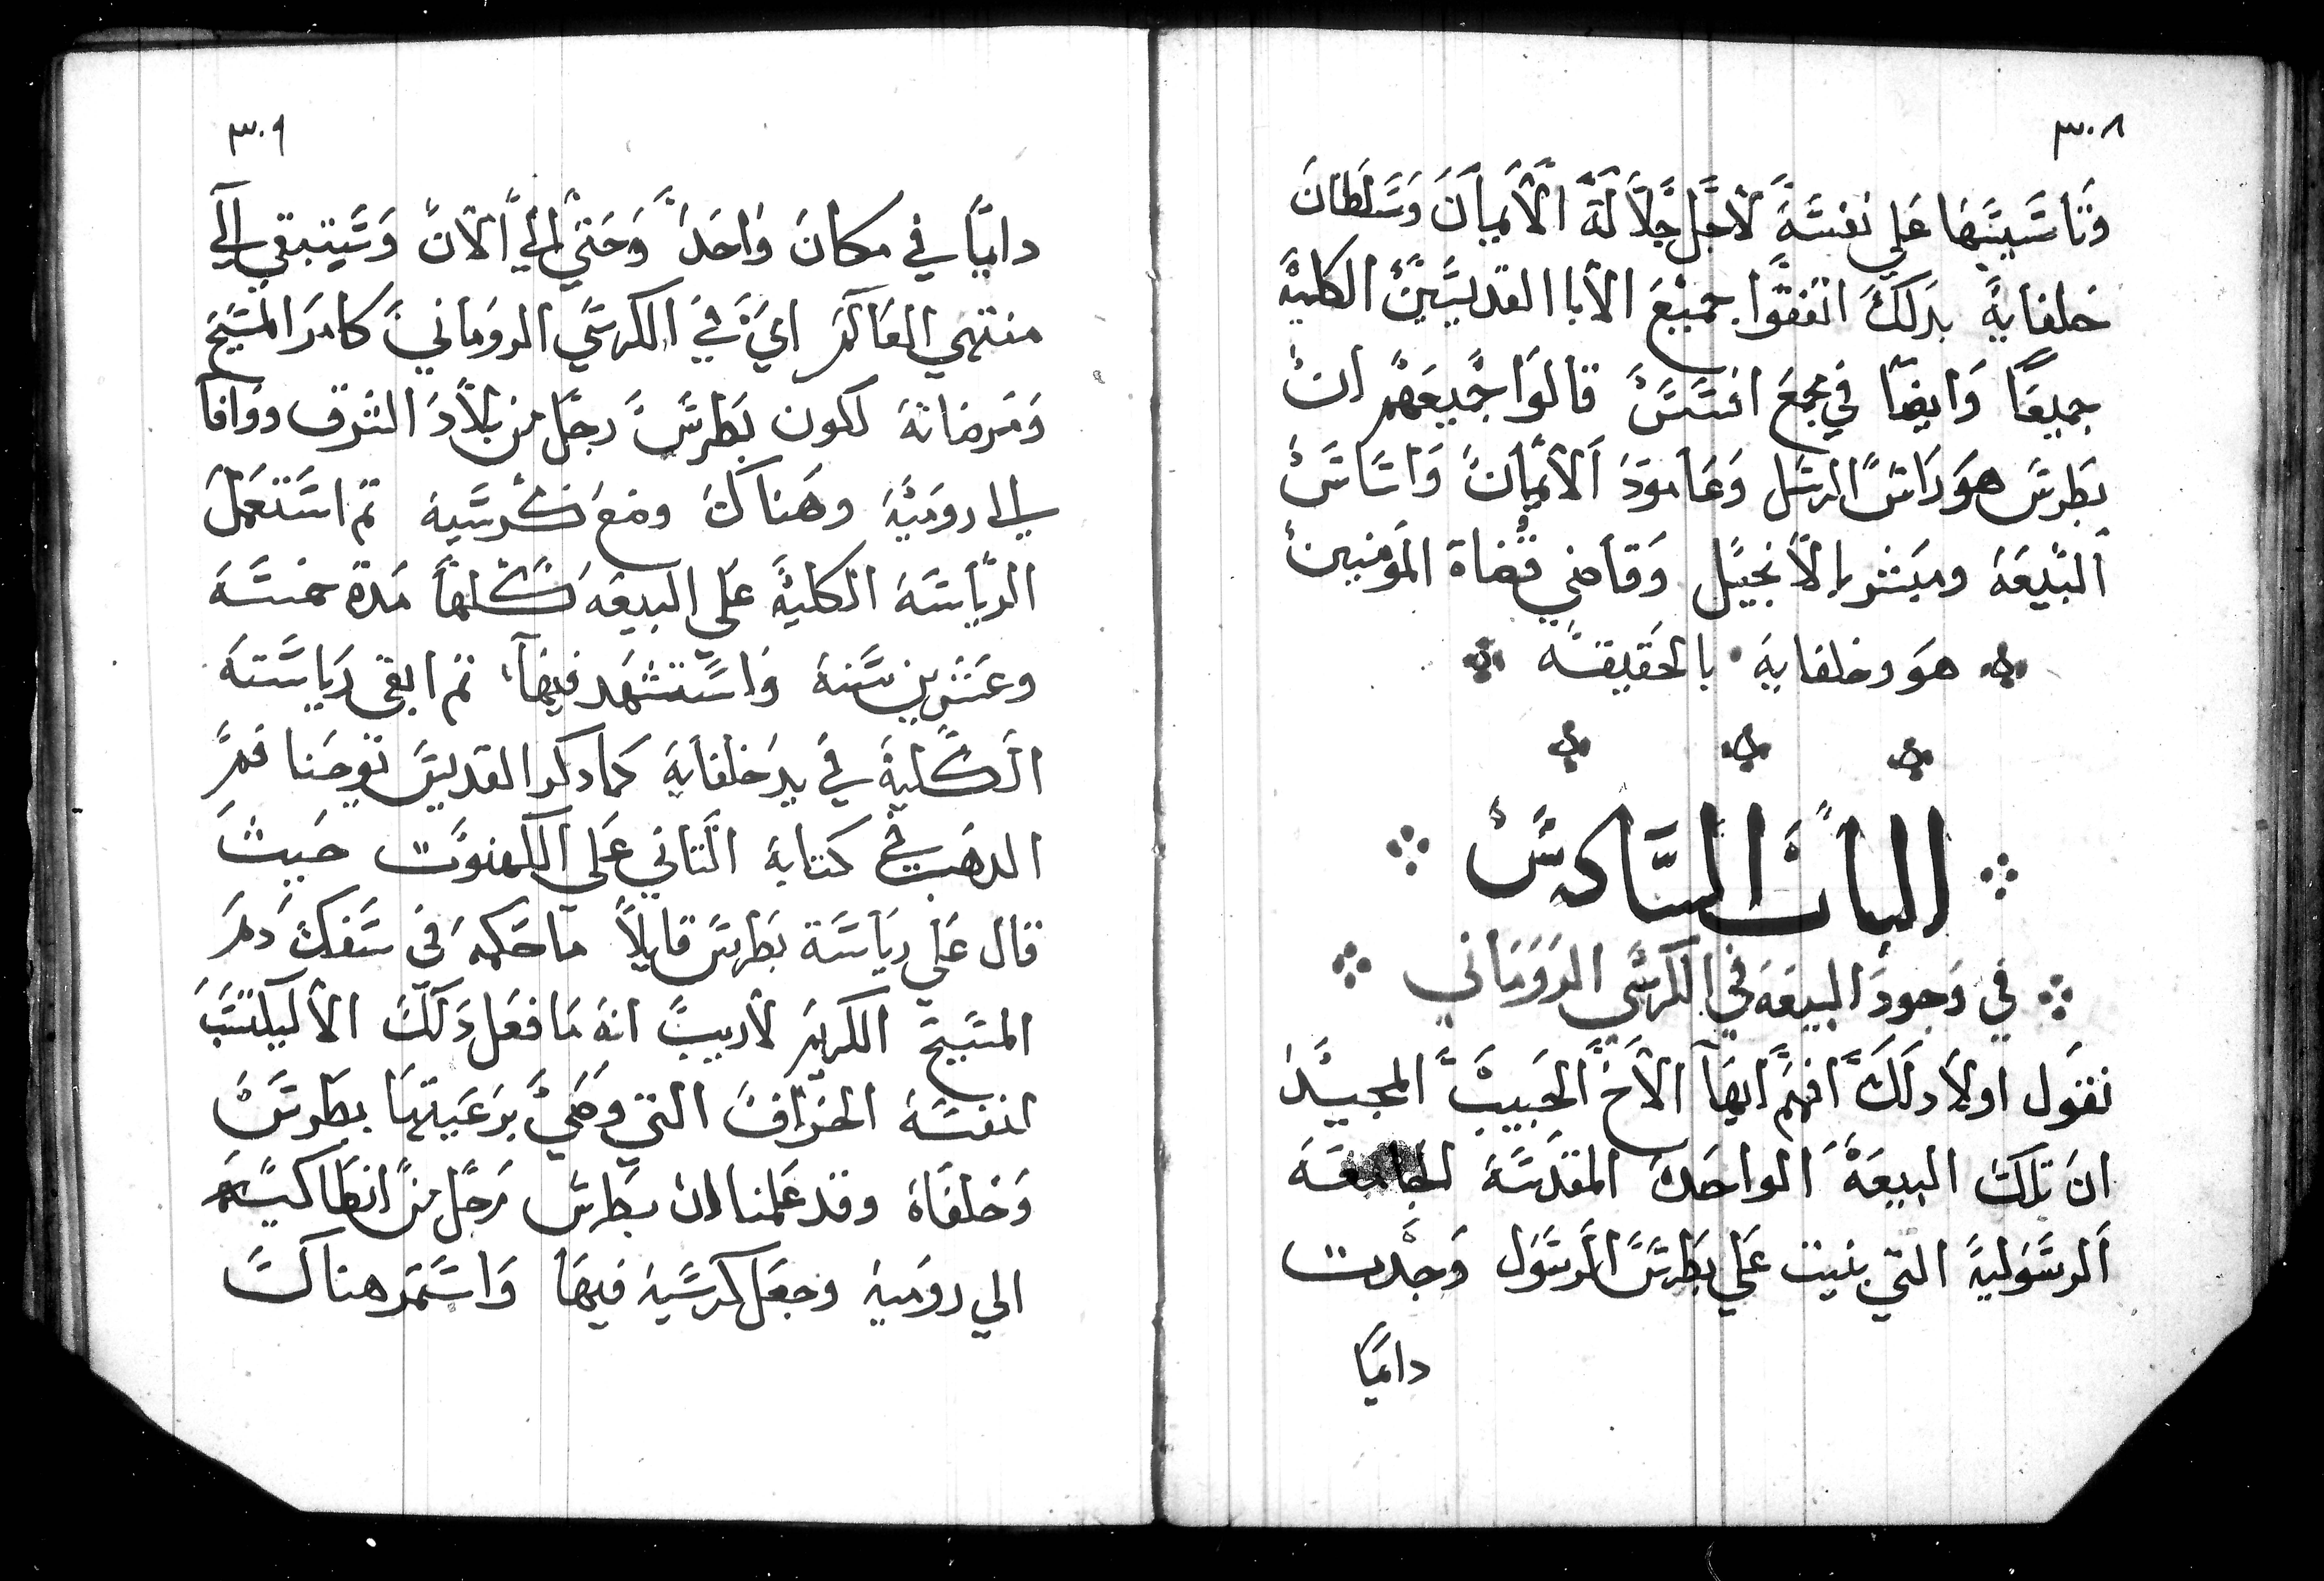 ٣٠٨
وتاسيسها علي نفسه لاجل جلالة الايمان وسلطان
خلفايه بدلك اتفقوا جميع الابا القديسين الكليه
جميعا وايضا في مجمع افسس قالوا جميعهم ان
بطرس هو راس الرسل وعامود الايمان واساس
البيعه ومبشر الانجيل وقاضي قضاة المومنين
هو وخلفايه بالحقيقه
الباب السادس
في وجود البيعه في الكرسي الروماني
نقول اولا دلك افهم ايها الاخ الحبيب المجيد
ان تلك البيعه الواحده المقدسه الجامعه
الرسوليه التي بنيت علي بطرس الرسول وجدت
دايما
٣٠٩
دايما في مكان واحد وحتي الي الان وستبقي الي
منتهي العالم اي في الكرسي الروماني كامر المسيح
ومرضاته لكون بطرس رجل من بلاد الشرق ووافا
الي روميه وهناك وضع كرسيه تم استعمل
الرياسه الكليه علي البيعه كلها مدة خمسه
وعشرين سنه واستشهد فيها تم ابقي رياسته
الكليه في يد خلفايه كما دكر القديس يوحنا فم
الدهب في كتابه التاني علي الكهنوت حيث
قال علي رياسة بطرس قايلا ما حكمه في سفك دم
المسيح الكريم لاريب انه ما فعل دلك الا ليكتسب
لنفسه الخراف التي وصي برعيتها بطرس
وخلفاه وقد علمنا ان بطرس رحل من انطاكيه
الي روميه وجعل كرسيه فيها واستمر هناك